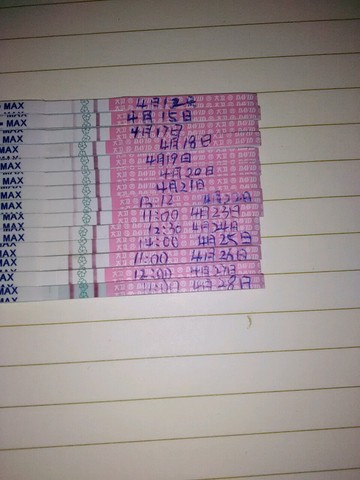 MAX 4月12日
MAX 4月15日
MAX 4月17日
MAX 4月18日
MAX 4月19日
MAX 4月20日
MAX 4月21日
MAX 13:12 4月22日
MAX 11:00 4月23日
MAX 12:30 4月24日
MAX 14:00 4月25日
MAX 11:00 4月26日
MAX 12:00 4月27日
MAX 11:00 4月28日